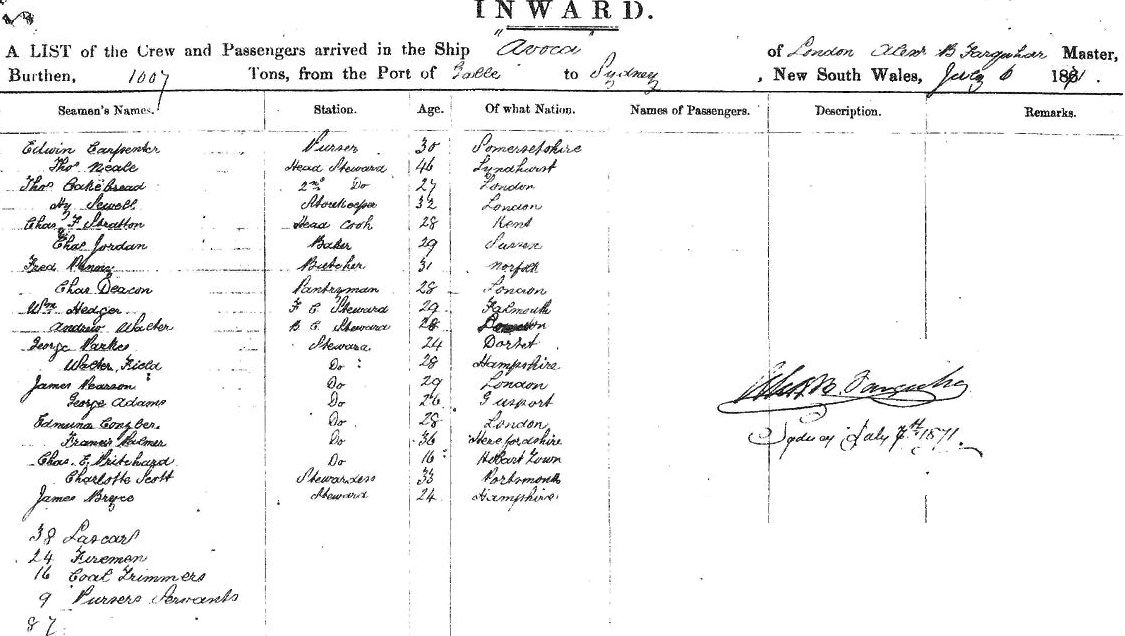 INWARD.
A LIST of the Crew and Passengers arrived in the Ship "Avoca" of London Alexr B Farquhar Master,
Burthen, 1007 Tons, from the Port of Galle to Sydney, New South Wales, July 6 1871.
Seamen's Names. Station. Age. Of what Nation. Names of Passengers. Description. Remarks.
Edwin Carpenter Purser 30 Somersetshire
Thos Neale Head Steward 46 Lyndhurst
Thos Cakebread 2nd Do 27 London
Hy Sewell Storekeeper 32 London
Chas F Stratton Head Cook 28 Kent
Chas Jordan Baker 29 Sussex
Fred Penny Butcher 31 Norfolk
Chas Deacon Pantryman 28 London
Wm Hedger F C Steward 29 Falmouth
Andrew Walter B C Steward 28
George Parkes Steward 24 Dorset
Walter Field Do 28 Hampshire
James Pearson Do 29 London
George Adams Do 26 Gusport
Edmund Do 28 London
Francis Palmer Do 36 Herefordshire
Chas. E Pritchard Do 16 Hobart Town
Charlotte Scott Stewardess 33 Portsmouth
James Bryce Steward 24 Hampshire
38 Lascars
24 Firemen
16 Coal Trimmers
9 Pursers Servants
87
Alexr B. Farquhar
Sydney July 7th 1871.